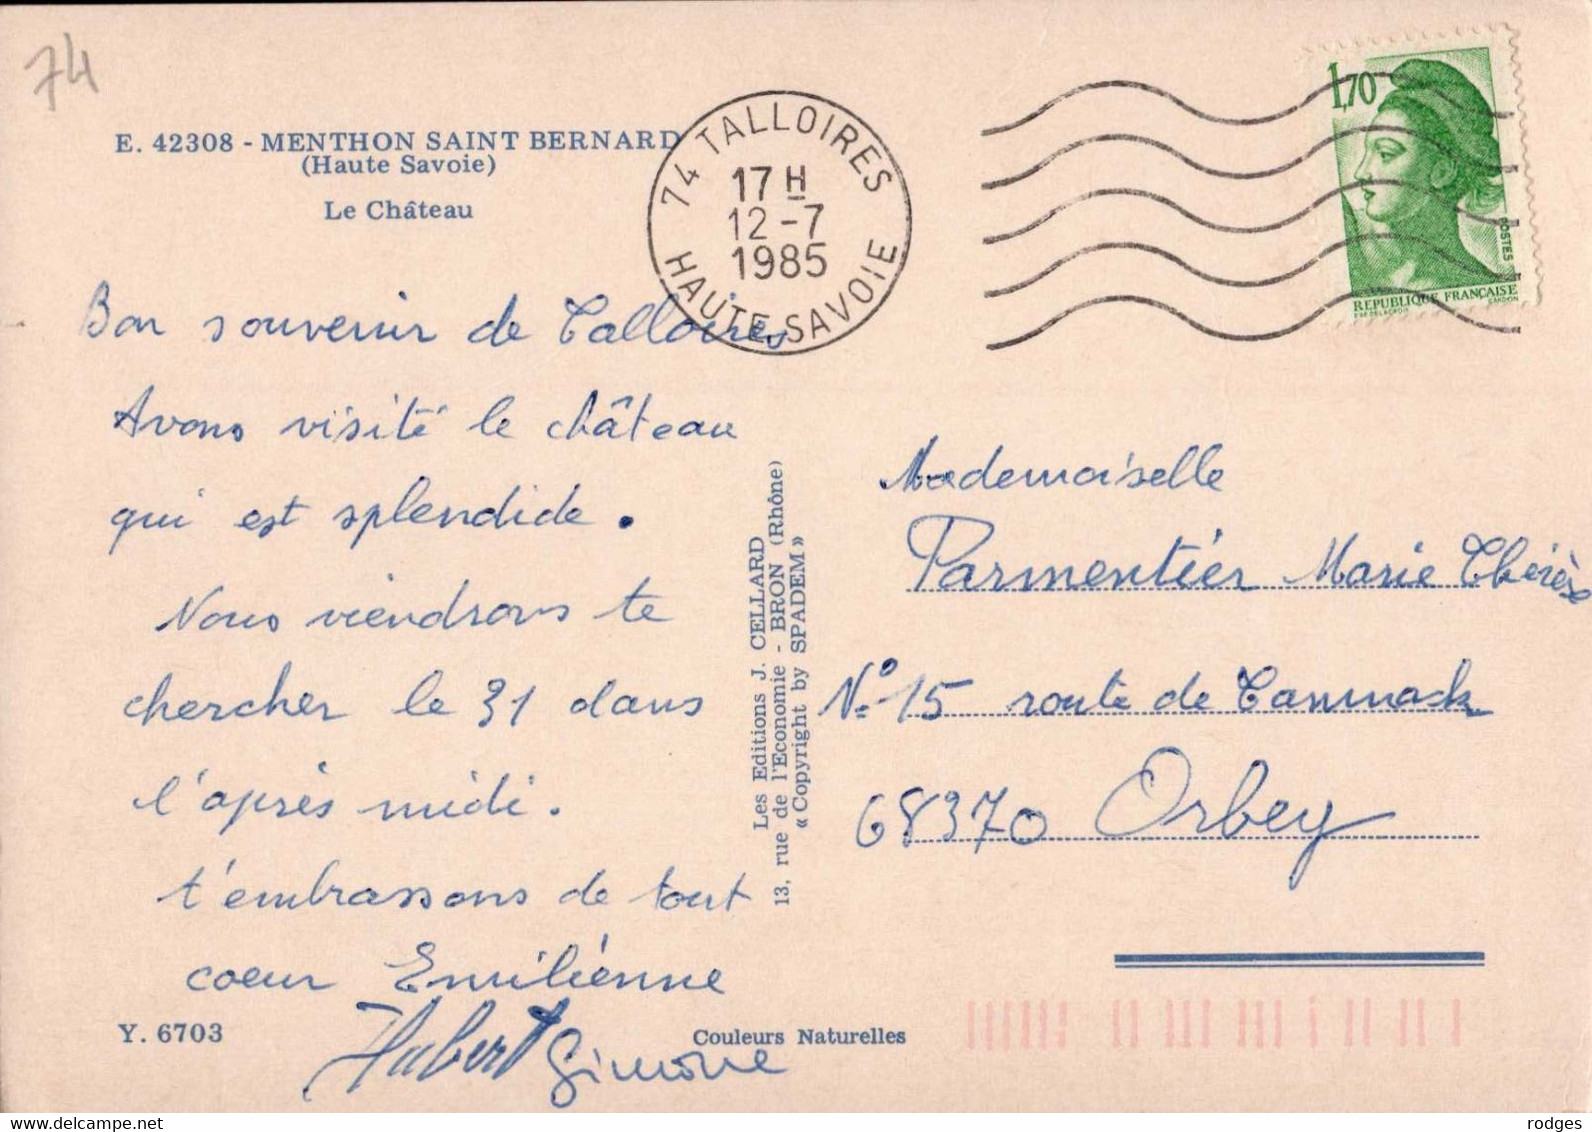 74
E. 42308 - MENTHON SAINT BERNARD
(Haute Savoie)
Le Château
74 TALLOIRES
17 H
12 - 7
1985
HAUTE-SAVOIE
1,70
POSTES
REPUBLIQUE FRANÇAISE
GANDON
Bon souvenir de Talloires
Avons visité le château
qui est splendide.
Nous viendrons te
chercher le 31 dans
l'après midi.
t'embrassons de tout
coeur Emiliénne
Hubert Simone
Les Editions J. CELLARD
13, rue de l'Economie - BRON (Rhône)
« Copyright by SPADEM »
Mademoiselle
Parmentiér Marie Thérèse
N° 15 route de Tannack
68370 Orbey
Y. 6703
Couleurs Naturelles
delcampe.net
rodges